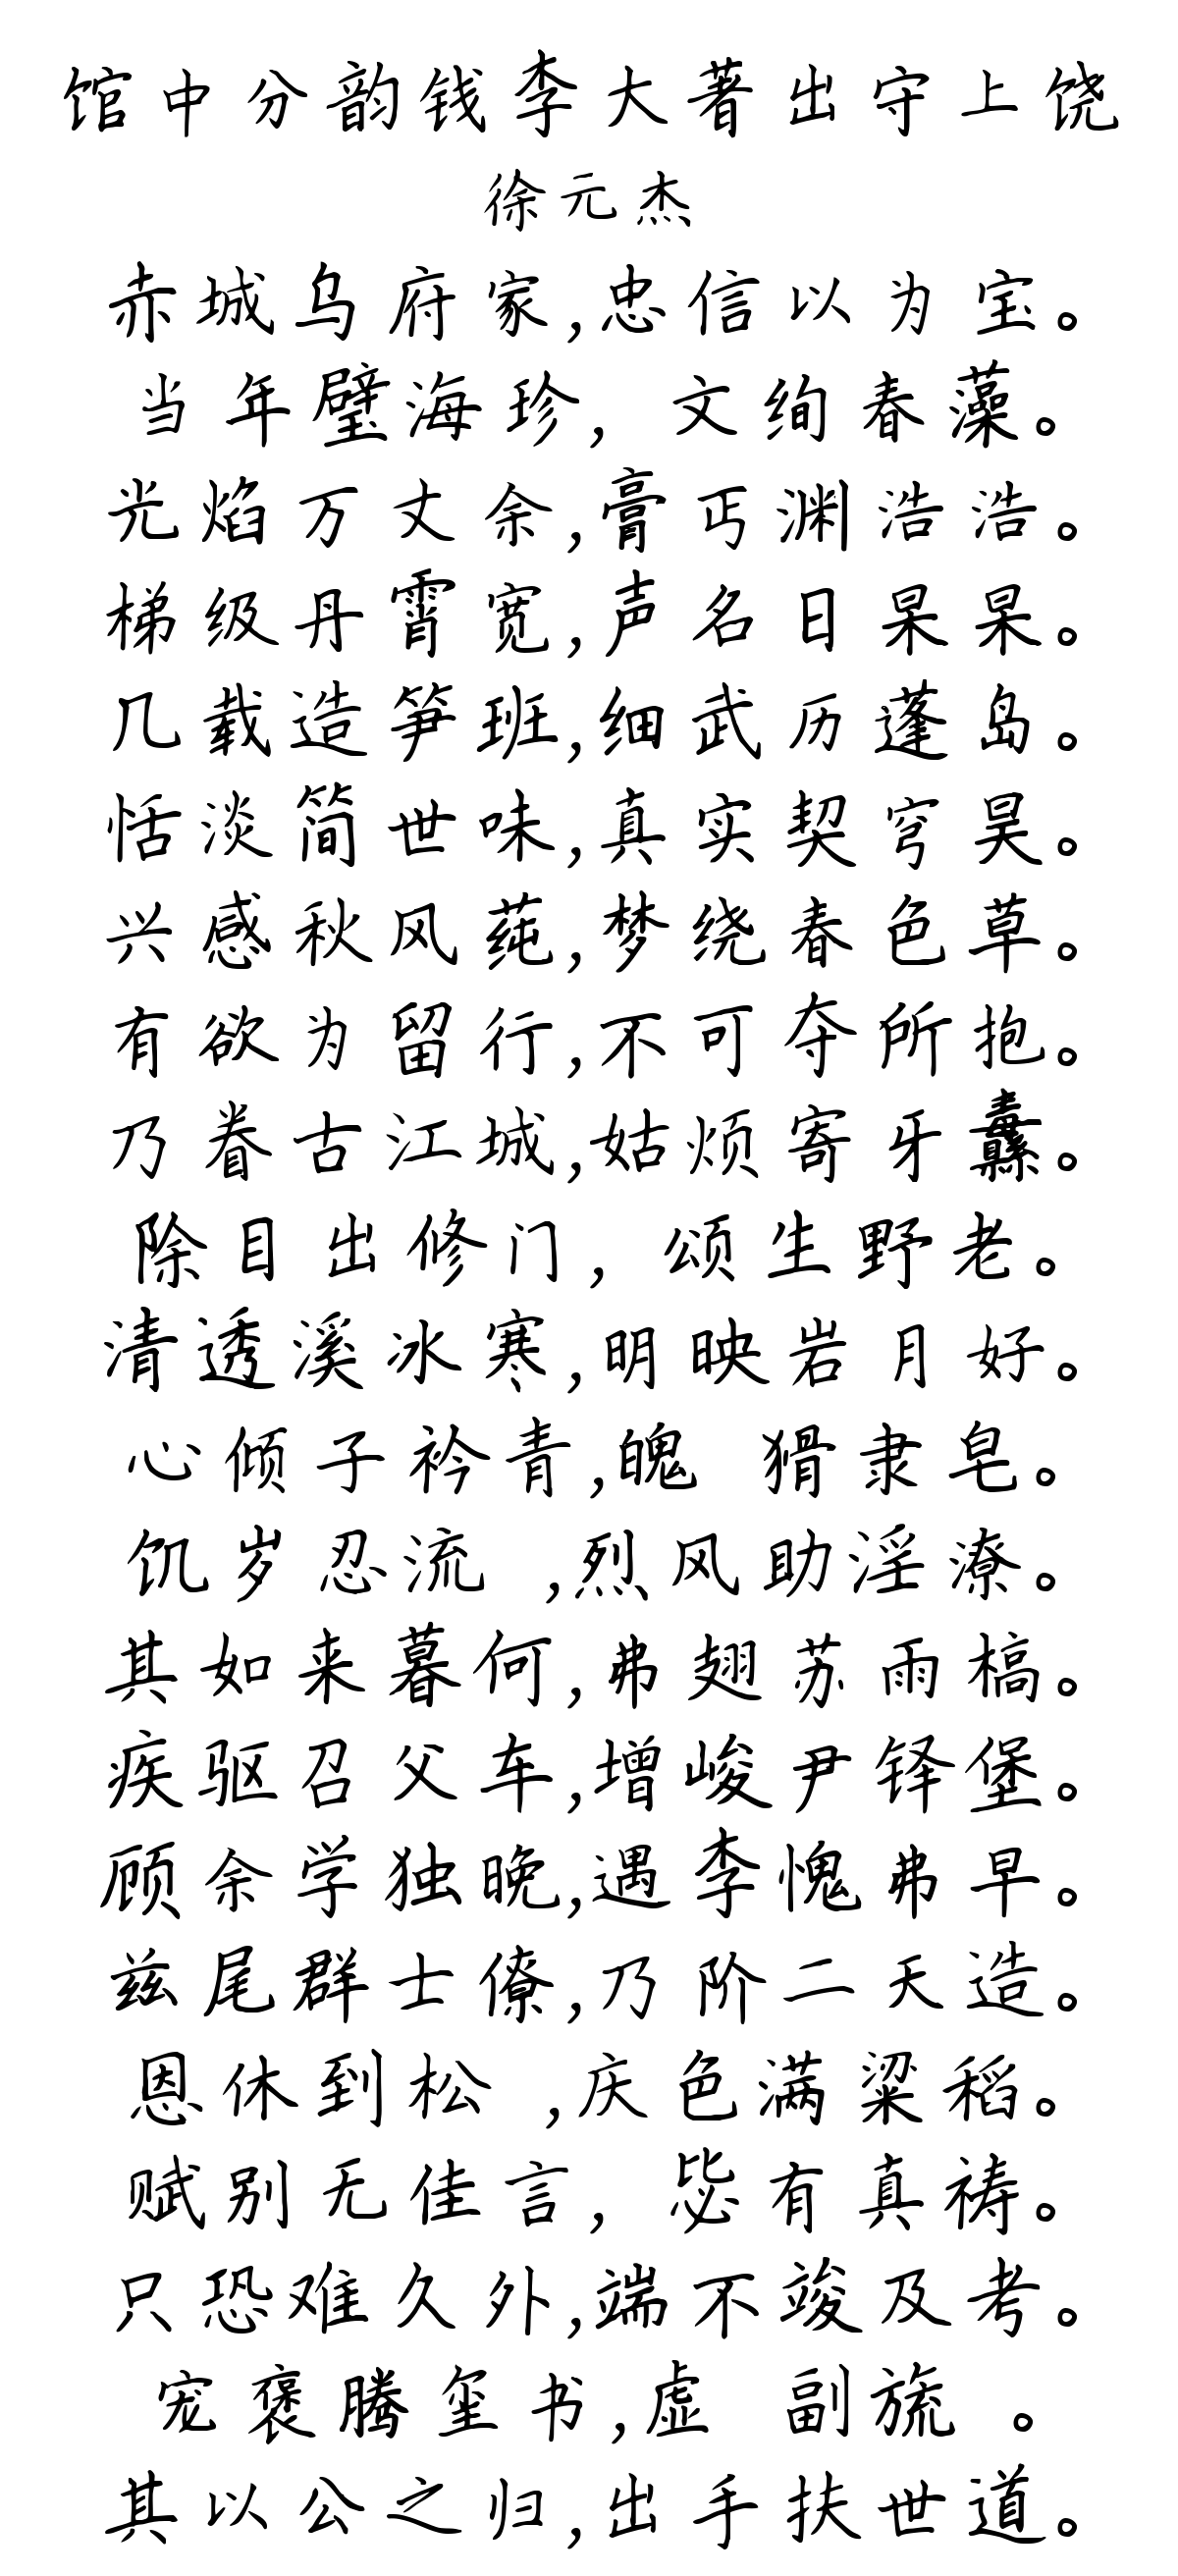 馆中分韵钱李大著出守上饶
徐元杰
赤城乌府家,忠信以为宝。
当年璧海珍,文绚春藻。
光焰万丈余,膏丐渊浩浩。
梯级丹霄宽,声名日杲杲。
几载造笋班,细武历蓬岛。
恬淡简世味,真实契穹昊。
兴感秋风莼,梦绕春色草。
有欲为留行,不可夺所抱。
乃眷古江城,姑烦寄牙纛。
除目出修门,颂生野老。
清透溪冰寒,明映岩月好。
心倾子衿青,魄 猾隶皂。
饥岁忍流 ,烈风助淫潦。
其如来暮何,弗翅苏雨槁。
疾驱召父车,增峻尹铎堡。
顾余学独晚,遇李愧弗早。
兹尾群士僚,乃阶二天造。
恩休到松 ,庆色满粱稻。
赋别无佳言,毖有真祷。
只恐难久外,端不竣及考。
宠褒腾玺书,虚 副旒 。
其以公之归,出手扶世道。